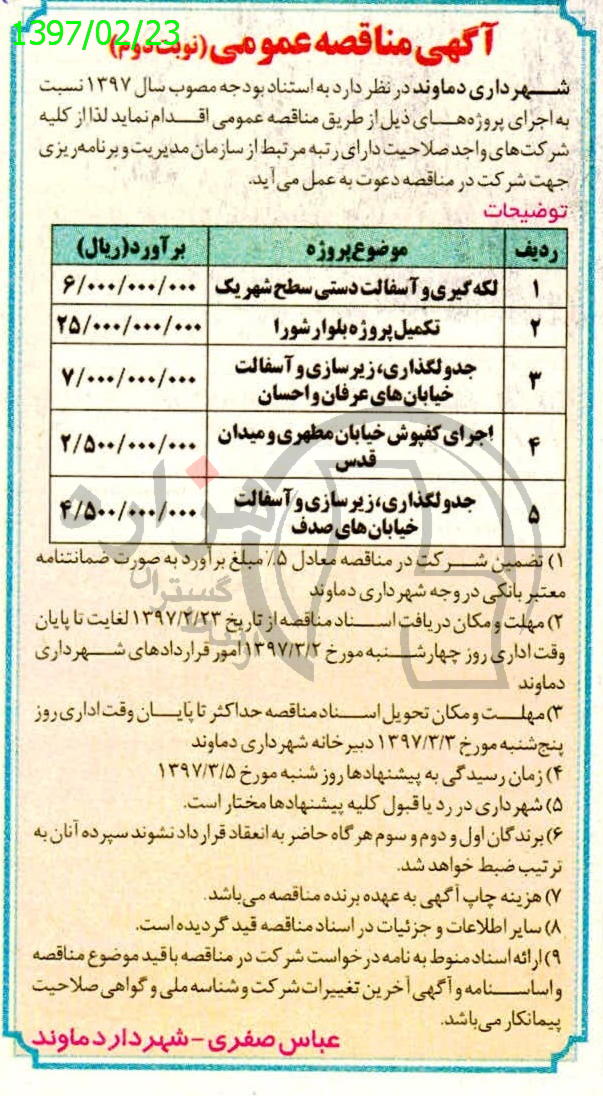 1397/02/23
آگهی مناقصه عمومی (نوبت دوم)
شهرداری دماوند در نظر دارد به استناد بودجه مصوب سال ۱۳۹۷ نسبت
به اجرای پروژه‌های ذیل از طریق مناقصه عمومی اقدام نماید لذا از کلیه
شرکت‌های واجد صلاحیت دارای رتبه مرتبط از سازمان مدیریت و برنامه‌ریزی
جهت شرکت در مناقصه دعوت به عمل می‌آید.
توضیحات
ردیف موضوع پروژه برآورد(ریال)
۱ لکه گیری و آسفالت دستی سطح شهر یک ۶/۰۰۰/۰۰۰/۰۰۰
۲ تکمیل پروژه بلوار شورا ۲۵/۰۰۰/۰۰۰/۰۰۰
۳ جدولگذاری، زیرسازی و آسفالت
خیابان‌های عرفان و احسان ۷/۰۰۰/۰۰۰/۰۰۰
۴ اجرای کفپوش خیابان مطهری و میدان
قدس ۲/۵۰۰/۰۰۰/۰۰۰
۵ جدولگذاری، زیرسازی و آسفالت
خیابان‌های صدف ۴/۵۰۰/۰۰۰/۰۰۰
هزاره
گستران
۱) تضمین شرکت در مناقصه معادل ۵٪ مبلغ برآورد به صورت ضمانتنامه
معتبر بانکی در وجه شهرداری دماوند
۲) مهلت و مکان دریافت اسناد مناقصه از تاریخ ۱۳۹۷/۲/۲۳ لغایت تا پایان
وقت اداری روز چهارشنبه مورخ ۱۳۹۷/۳/۲ امور قراردادهای شهرداری
دماوند
۳) مهلت و مکان تحویل اسناد مناقصه حداکثر تا پایان وقت اداری روز
پنج‌شنبه مورخ ۱۳۹۷/۳/۳ دبیرخانه شهرداری دماوند
۴) زمان رسیدگی به پیشنهادها روز شنبه مورخ ۱۳۹۷/۳/۵
۵) شهرداری در رد یا قبول کلیه پیشنهادها مختار است.
۶) برندگان اول و دوم و سوم هرگاه حاضر به انعقاد قرارداد نشوند سپرده آنان به
ترتیب ضبط خواهد شد.
۷) هزینه چاپ آگهی به عهده برنده مناقصه می‌باشد.
۸) سایر اطلاعات و جزئیات در اسناد مناقصه قید گردیده است.
۹) ارائه اسناد منوط به نامه درخواست شرکت در مناقصه با قید موضوع مناقصه
و اساسنامه و آگهی آخرین تغییرات شرکت و شناسه ملی و گواهی صلاحیت
پیمانکار می‌باشد.
عباس صفری - شهردار دماوند